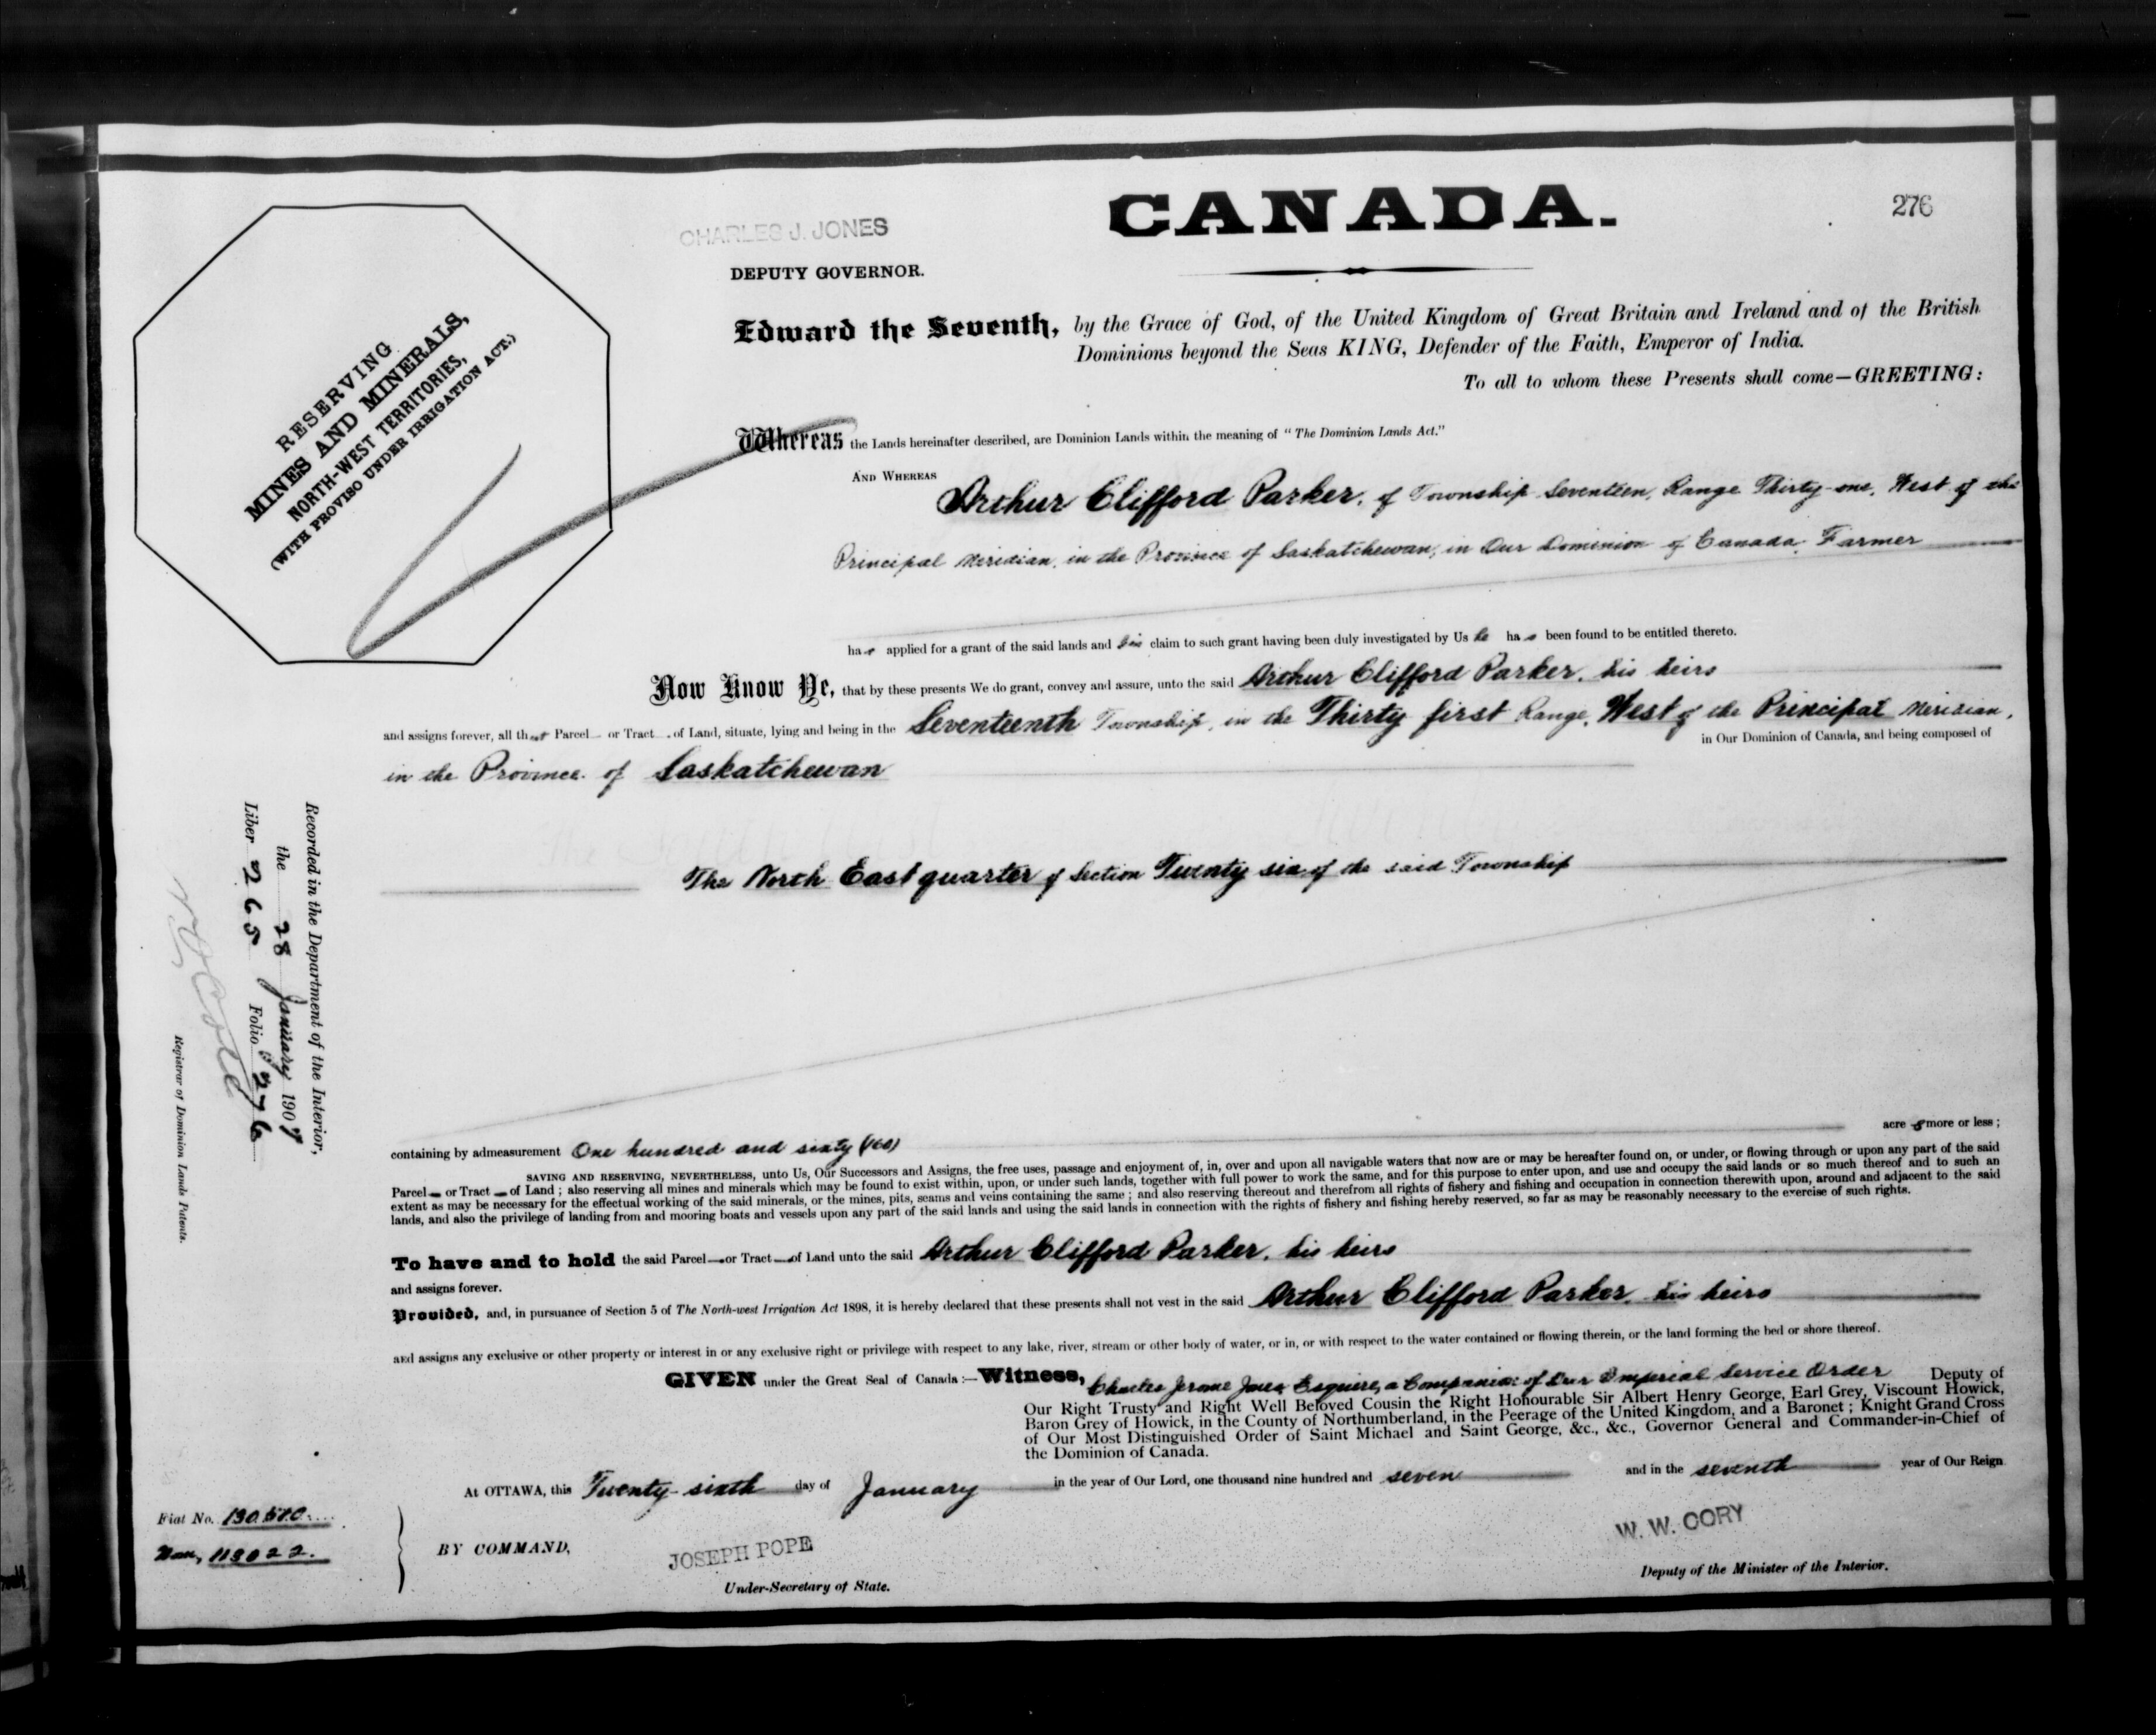 CANADA.
276
CHARLES J. JONES
DEPUTY GOVERNOR.
RESERVING
MINES AND MINERALS,
NORTH-WEST TERRITORIES,
(WITH PROVISO UNDER IRRIGATION ACT.)
Edward the Seventh, by the Grace of God, of the United Kingdom of Great Britain and Ireland and of the British
Dominions beyond the Seas KING, Defender of the Faith, Emperor of India.
To all to whom these Presents shall come—GREETING:
Whereas the Lands hereinafter described, are Dominion Lands within the meaning of "The Dominion Lands Act."
AND WHEREAS
Arthur Clifford Parker, of Township Seventeen, Range Thirty-one, West of the
Principal Meridian, in the Province of Saskatchewan, in Our Dominion of Canada, Farmer
has applied for a grant of the said lands and his claim to such grant having been duly investigated by Us he has been found to be entitled thereto.
Now Know Ye, that by these presents We do grant, convey and assure, unto the said Arthur Clifford Parker, his heirs
and assigns forever, all that Parcel or Tract of Land, situate, lying and being in the Seventeenth Township, in the Thirty first Range, West of the Principal Meridian,
in the Province of Saskatchewan in Our Dominion of Canada, and being composed of
The North East quarter of Section Twenty six of the said Township
Recorded in the Department of the Interior,
the 28 January 1907
Liber 265 Folio 276
Registrar of Dominion Lands Patents.
containing by admeasurement One hundred and sixty (160) acres more or less;
SAVING AND RESERVING, NEVERTHELESS, unto Us, Our Successors and Assigns, the free uses, passage and enjoyment of, in, over and upon all navigable waters that now are or may be hereafter found on, or under, or flowing through or upon any part of the said
Parcel or Tract of Land; also reserving all mines and minerals which may be found to exist within, upon, or under such lands, together with full power to work the same, and for this purpose to enter upon, and use and occupy the said lands or so much thereof and to such an
extent as may be necessary for the effectual working of the said minerals, or the mines, pits, seams and veins containing the same; and also reserving thereout and therefrom all rights of fishery and fishing and occupation in connection therewith upon, around and adjacent to the said
lands, and also the privilege of landing from and mooring boats and vessels upon any part of the said lands and using the said lands in connection with the rights of fishery and fishing hereby reserved, so far as may be reasonably necessary to the exercise of such rights.
To have and to hold the said Parcel or Tract of Land unto the said Arthur Clifford Parker, his heirs
and assigns forever.
Provided, and, in pursuance of Section 5 of The North-west Irrigation Act 1898, it is hereby declared that these presents shall not vest in the said Arthur Clifford Parker, his heirs
and assigns any exclusive or other property or interest in or any exclusive right or privilege with respect to any lake, river, stream or other body of water, or in, or with respect to the water contained or flowing therein, or the land forming the bed or shore thereof.
GIVEN under the Great Seal of Canada:—Witness, Charles Jerome Jones Esquire, a Companion of Our Imperial Service Order Deputy of
Our Right Trusty and Right Well Beloved Cousin the Right Honourable Sir Albert Henry George, Earl Grey, Viscount Howick,
Baron Grey of Howick, in the County of Northumberland, in the Peerage of the United Kingdom, and a Baronet; Knight Grand Cross
of Our Most Distinguished Order of Saint Michael and Saint George, &c., &c., Governor General and Commander-in-Chief of
the Dominion of Canada.
At OTTAWA, this Twenty-sixth day of January in the year of Our Lord, one thousand nine hundred and seven and in the seventh year of Our Reign
Fiat No. 130570
113022.
BY COMMAND,
JOSEPH POPE
Under-Secretary of State.
W. W. CORY
Deputy of the Minister of the Interior.